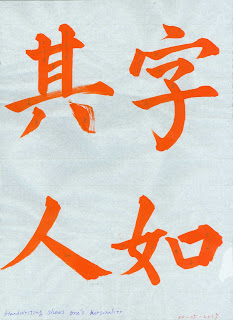 字如
其人
Handwriting shows one's personality